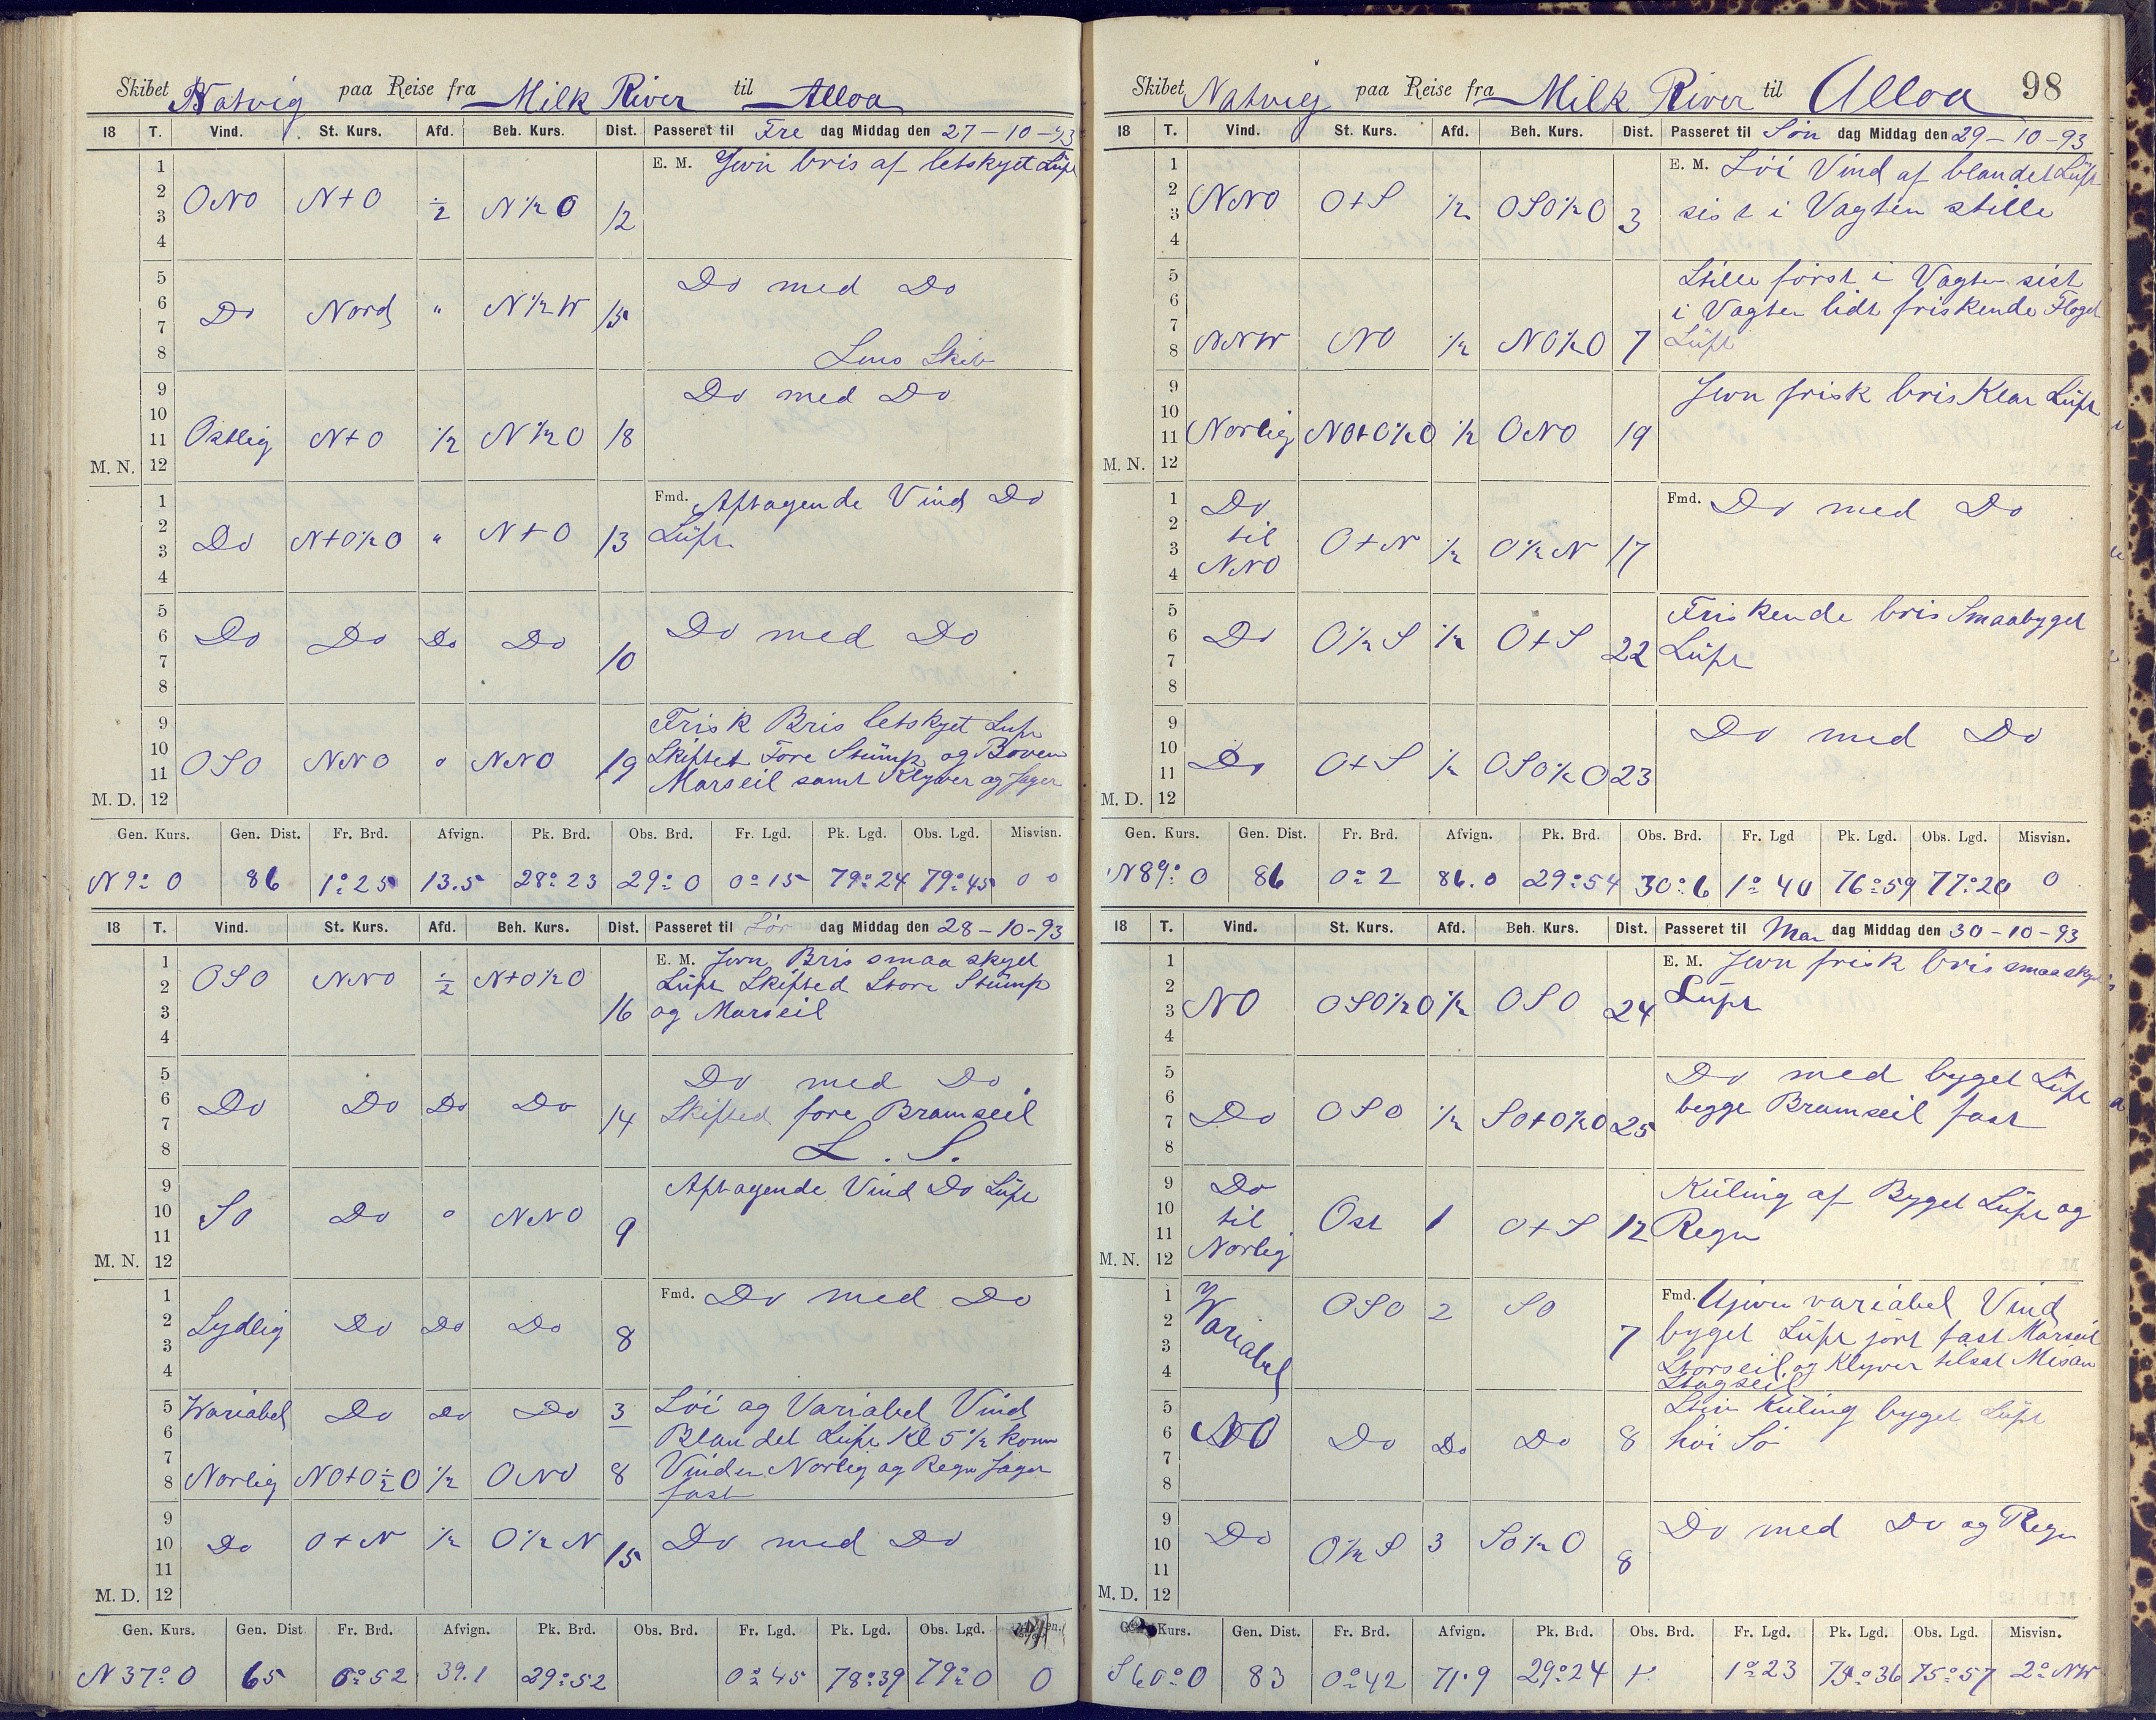 Skibet Natvig paa Reise fra Milk River til Alloa
18 T. Vind. St. Kurs. Afd. Beh. Kurs. Dist. Passeret til Fre dag Middag den 27-10-93
1 2 3 4 ONO N+O ½ N½O 12 E. M. Jevn bris af letskyet Luft
5 6 7 8 Do Nord " N½W 15 Do med Do
Lens Skib
9 10 11 M. N. 12 Ostlig N+O ½ N½O 18 Do med Do
1 2 3 4 Do N+O½O " N+O 13 Fmd. Aftagende Vind Do
Luft
5 6 7 8 Do Do Do Do 10 Do med Do
9 10 11 M. D. 12 OSO NNO " NNO 19 Frisk Bris letskyet Luft
Skiftet Fore Stump og Boven
Marseil samt Klyver og Jager
Gen. Kurs. Gen. Dist. Fr. Brd. Afvign. Pk. Brd. Obs. Brd. Fr. Lgd. Pk. Lgd. Obs. Lgd. Misvisn.
N 9° O 86 1° 25 13.5 28° 23 29° 0 0° 15 79° 24 79° 45 0°
18 T. Vind. St. Kurs. Afd. Beh. Kurs. Dist. Passeret til Lør dag Middag den 28-10-93
1 2 3 4 OSO NNO ½ N+O½O 16 E. M. Jevn Bris smaaskyet
Luft Skifted Store Stump
og Marseil
5 6 7 8 Do Do Do Do 14 Do med Do
Skifted fore Bramseil
L. S.
9 10 11 M. N. 12 SO Do " NNO 9 Aftagende Vind Do Luft
1 2 3 4 Sydlig Do Do Do 8 Fmd. Do med Do
5 Variabel Do Do Do 3 Löi og Variabel Vind
6 7 Blandet Luft Kl 5½ kom
8 Norlig NO+O½O ½ ONO 8 Vinden Norlig og Regn Jager
fast
9 10 11 M. D. 12 Do O+N ½ O½N 15 Do med Do
Gen. Kurs. Gen. Dist. Fr. Brd. Afvign. Pk. Brd. Obs. Brd. Fr. Lgd. Pk. Lgd. Obs. Lgd.
N 37° O 65 0° 52 39.1 29° 52 0° 45 78° 39 79° 0 0
Skibet Natvig paa Reise fra Milk River til Alloa 98
18 T. Vind. St. Kurs. Afd. Beh. Kurs. Dist. Passeret til Søn dag Middag den 29-10-93
1 2 3 4 NNO O+S ½ OSO½O 3 E. M. Löi Vind af blandet Luft
sist i Vagten stille
5 6 7 8 NNW NO ½ NO½O 7 Stille först i Vagten sist
i Vagten lidt friskende Floget
Luft
9 10 11 M. N. 12 Norlig NO+O½O ½ ONO 19 Jevn frisk bris Klar Luft
1 2 3 4 Do til NNO O+N ½ O½N 17 Fmd. Do med Do
5 6 7 8 Do O½S ½ O+S 22 Friskende bris Smaabyget
Luft
9 10 11 M. D. 12 Do O+S ½ OSO½O 23 Do med Do
Gen. Kurs. Gen. Dist. Fr. Brd. Afvign. Pk. Brd. Obs. Brd. Fr. Lgd Pk. Lgd. Obs. Lgd. Misvisn.
N 89° O 86 0° 2 86.0 29° 54 30° 6 1° 40 76° 59 77° 20 0
18 T. Vind. St. Kurs. Afd. Beh. Kurs. Dist. Passeret til Man dag Middag den 30-10-93
1 2 3 4 NO OSO½O ½ OSO 24 E. M. Jevn frisk bris smaaskyet
Luft
5 6 7 8 Do OSO ½ SO+O½O 25 Do med byget Luft
begge Bramseil fast
9 10 11 M. N. 12 Do til Norlig Ost 1 O+S 12 Kuling af Byget Luft og
Regn
1 2 3 4 Variabel OSO 2 SO 7 Fmd. Ujevn variabel Vind
byget Luft jört fast Marseil
Storseil og Klyver tilsat Mesan
Stagseil
5 6 7 8 NO Do Do Do 8 Stiv Kuling byget Luft
höi Sö
9 10 11 M. D. 12 Do O½S 3 SO½O 8 Do med Do og Regn
Kurs. Gen. Dist. Fr. Brd. Afvign. Pk. Brd. Obs. Brd. Fr. Lgd. Pk. Lgd. Obs. Lgd. Misvisn.
S 60° O 83 0° 42 71.9 29° 24 1° 23 75° 36 75° 57 2° NW